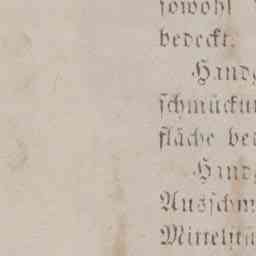 ſowohl
bedeckt.
Hand
ſchmücku
fläche be
Hand
Ausſchm
Mittelſtü